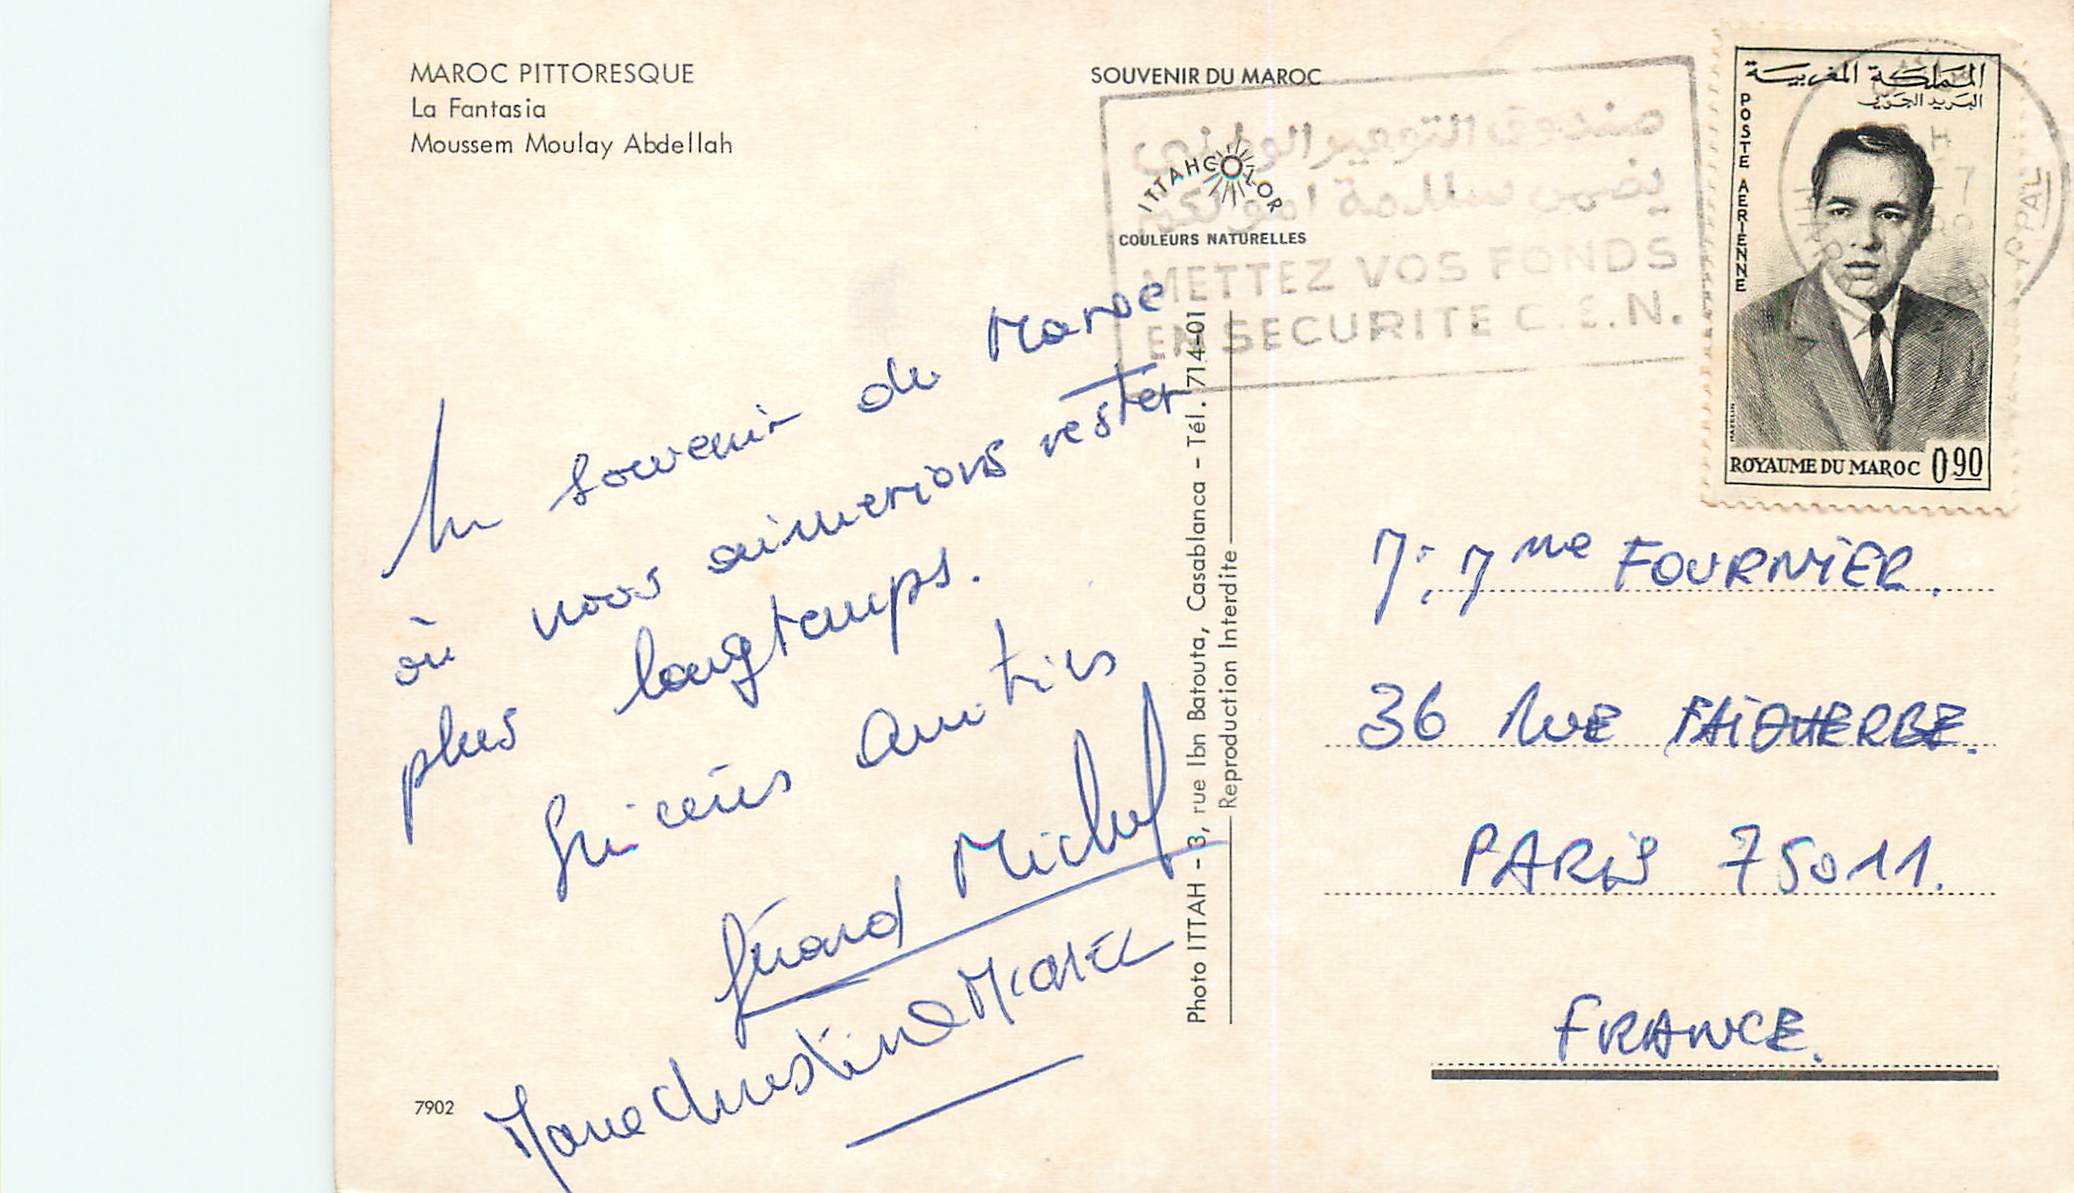 MAROC PITTORESQUE
La Fantasia
Moussem Moulay Abdellah
SOUVENIR DU MAROC
ITTAHCOLOR
COULEURS NATURELLES
صندوق التوفير الوطني
يضمن سلامة اموالكم
METTEZ VOS FONDS
EN SECURITE C.E.N.
المملكة المغربية
البريد الجوي
POSTE AERIENNE
MAZELIN
ROYAUME DU MAROC 0,90
Un souvenir du Maroc
où nous aimerions rester
plus longtemps.
Sincères amitiés
Gérard Michel
Marie Christine
7902
Photo ITTAH - 3, rue Ibn Batouta, Casablanca - Tél. 714-01
Reproduction Interdite
M; Mme FOURNIER.
36 RUE FAIDHERBE.
PARIS 75011.
FRANCE.